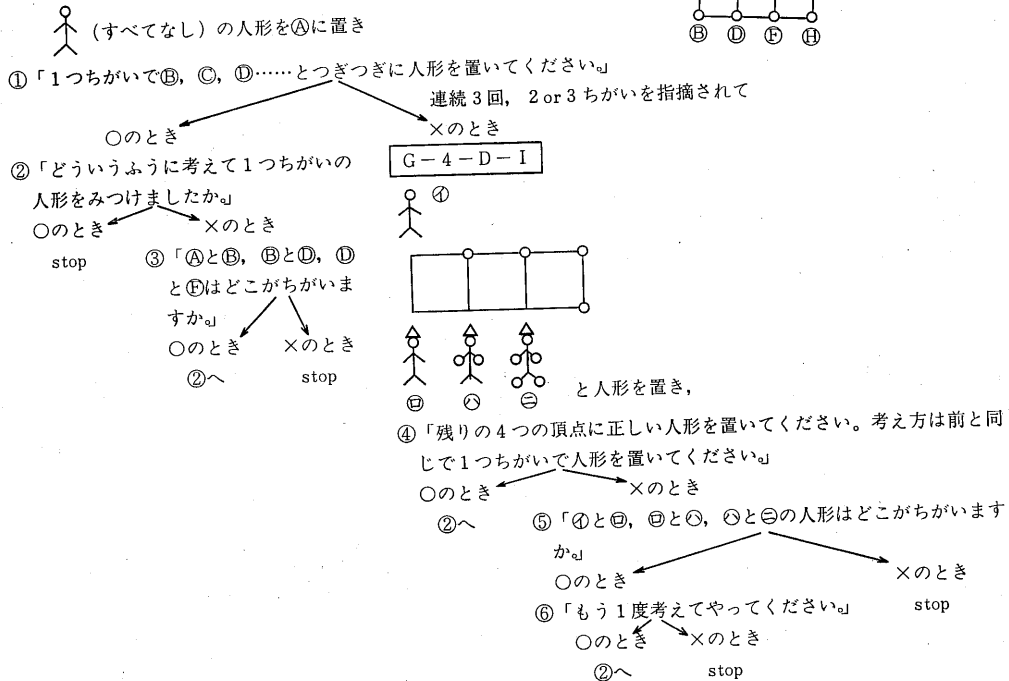 (すべてなし)の人形をⒶに置き
Ⓑ Ⓓ Ⓕ Ⓗ
①「1つちがいでⒷ,Ⓒ,Ⓓ……とつぎつぎに人形を置いてください。」
連続3回,2or3ちがいを指摘されて
○のとき
×のとき
G-4-D-I
②「どういうふうに考えて1つちがいの
人形をみつけましたか。」
㋑
○のとき
×のとき
stop
③「ⒶとⒷ,ⒷとⒹ,Ⓓ
とⒻはどこがちがいま
すか。」
○のとき
×のとき
②へ
stop
㋺ ㋩ ㋥
と人形を置き,
④「残りの4つの頂点に正しい人形を置いてください。考え方は前と同
じで1つちがいで人形を置いてください。」
○のとき
×のとき
②へ
⑤「㋑と㋺,㋺と㋩,㋩と㋥の人形はどこがちがいます
か。」
○のとき
×のとき
stop
⑥「もう1度考えてやってください。」
○のとき
×のとき
②へ
stop